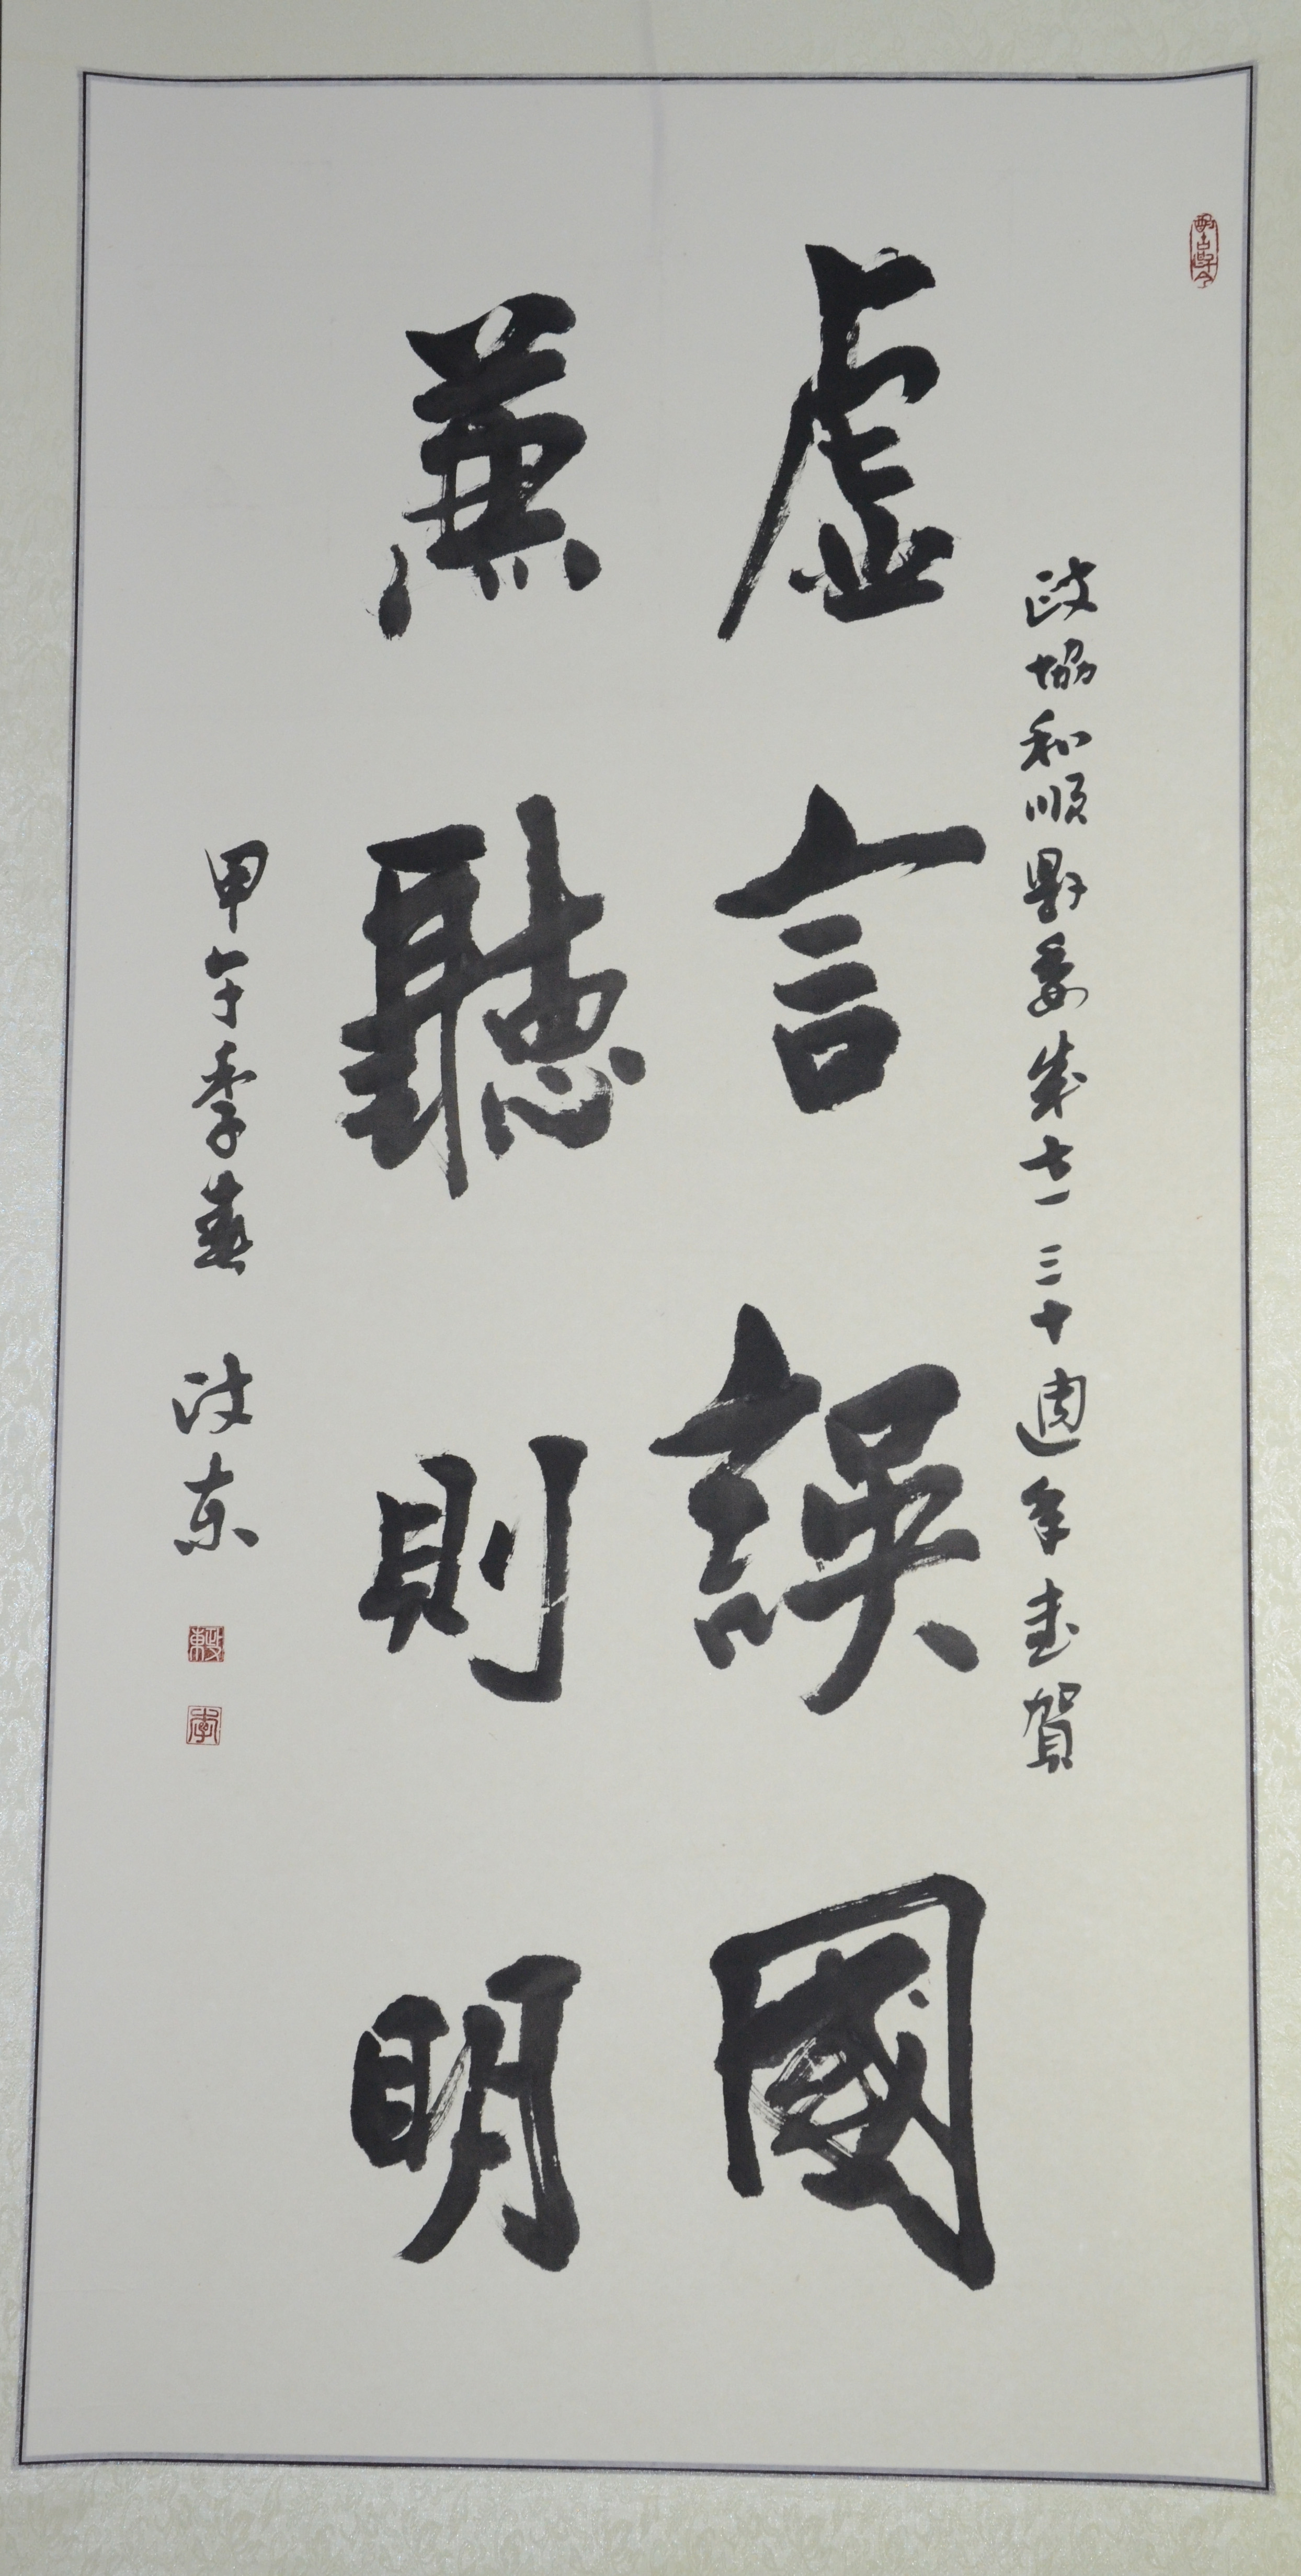 政協和順縣委成立三十週年志賀
虛言誤國
兼聽則明
甲午季春 政东